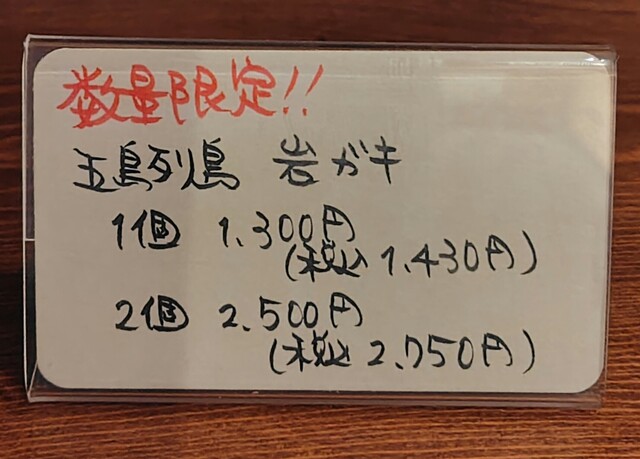 数量限定!!
五島列島 岩ガキ
1個 1.300円
(税込 1.430円)
2個 2.500円
(税込 2.750円)